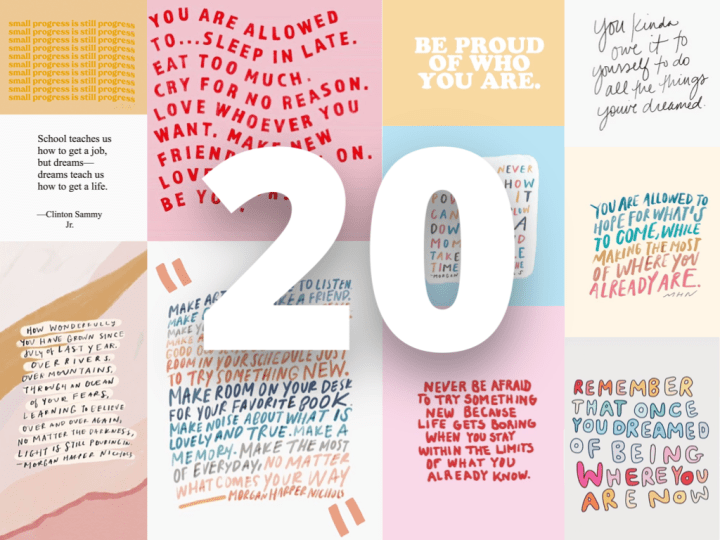 small progress is still progress
small progress is still progress
small progress is still progress
small progress is still progress
small progress is still progress
small progress is still progress
small progress is still progress
small progress is still progress
School teaches us
how to get a job,
but dreams—
dreams teach us
how to get a life.
—Clinton Sammy
Jr.
HOW WONDERFULLY
YOU HAVE GROWN SINCE
JULY OF LAST YEAR.
OVER RIVERS.
OVER MOUNTAINS.
THROUGH AN OCEAN
OF YOUR FEARS,
LEARNING TO BELIEVE
OVER AND OVER AGAIN,
NO MATTER THE DARKNESS,
LIGHT IS STILL POURING IN.
-MORGAN HARPER NICHOLS
YOU ARE ALLOWED
TO...SLEEP IN LATE.
EAT TOO MUCH.
CRY FOR NO REASON.
LOVE WHOEVER YOU
WANT. MAKE NEW
ON.
BE
20
MAKE TO LISTEN.
MAKE A FRIEND.
MAKE
MAKE
GOOD
ROOM IN YOUR SCHEDULE JUST
TO TRY SOMETHING NEW.
MAKE ROOM ON YOUR DESK
FOR YOUR FAVORITE BOOK.
MAKE NOISE ABOUT WHAT IS
LOVELY AND TRUE. MAKE A
MEMORY. MAKE THE MOST
OF EVERYDAY, NO MATTER
WHAT COMES YOUR WAY
-MORGAN HARPER NICHOLS
BE PROUD
OF WHO
YOU ARE.
NEVER
HOW
IT
CAN
A
DOW
MOM
TAKE
TIME
NEVER BE AFRAID
TO TRY SOMETHING
NEW BECAUSE
LIFE GETS BORING
WHEN YOU STAY
WITHIN THE LIMITS
OF WHAT YOU
ALREADY KNOW.
you kinda
owe it to
yourself to do
all the things
youve dreamed.
YOU ARE ALLOWED TO
HOPE FOR WHAT'S
TO COME, WHILE
MAKING THE MOST
OF WHERE YOU
ALREADY ARE.
MHN
REMEMBER
THAT ONCE
YOU DREAMED
OF BEING
WHERE YOU
ARE NOW